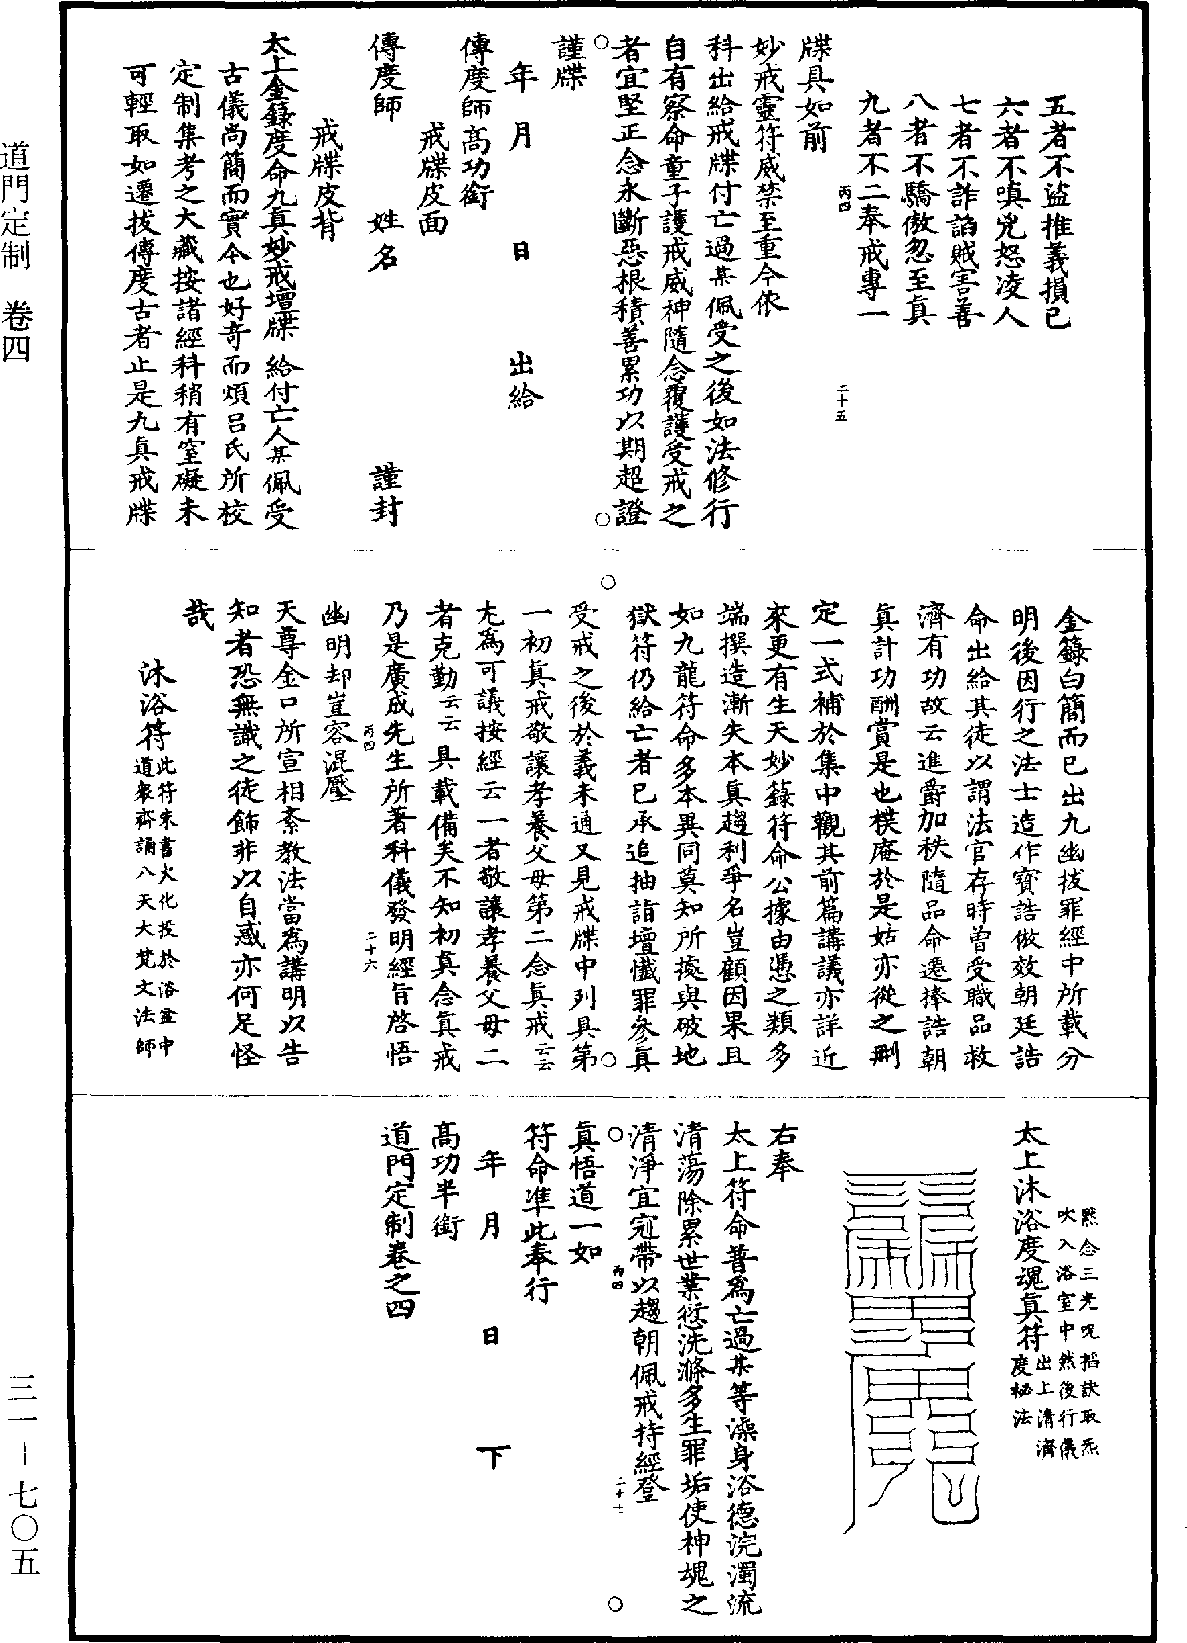 道門定制　卷四
五者不盜推義損己
六者不嗔兇怒凌人
七者不詐諂賊害善
八者不驕傲忽至真
九者不二奉戒專一
丙四
二十五
牒具如前
妙戒靈符威禁至重今依
科出給戒牒付亡過某佩受之後如法修行
自有察命童子護戒威神隨念覆護受戒之
者宜堅正念永斷惡根積善累功以期超證
謹牒
年　月　日　出給
傳度師高功銜
戒牒皮面
傳度師　姓名　謹封
戒牒皮背
太上金籙度命九真妙戒壇牒　給付亡人某佩受
古儀尚簡而實今也好奇而煩呂氏所校
定制集考之大藏按諸經科稍有窒礙未
可輕取如遷拔傳度古者止是九真戒牒
金籙白簡而已出九幽拔罪經中所載分
明後因行之法士造作寶誥倣效朝廷誥
命出給其徒以謂法官存時曾受職品救
濟有功故云進爵加秩隨品命遷捧誥朝
真計功酬賞是也樸庵於是姑亦從之刪
定一式補於集中觀其前篇講議亦詳近
來更有生天妙籙符命公據由憑之類多
端撰造漸失本真趨利爭名豈顧因果且
如九龍符命多本異同莫知所據與破地
獄符仍給亡者已承追抽詣壇懺罪參真
受戒之後於義未通又見戒牒中列具第
一初真戒敬讓孝養父母第二念真戒云云
尤為可議按經云一者敬讓孝養父母二
者克勤云云具載備矣不知初真念真戒
乃是廣成先生所著科儀發明經旨啓悟
丙四
二十六
幽明却豈容混壓
天尊金口所宣相紊教法當為講明以告
知者恐無識之徒飾非以自惑亦何足怪
哉
沐浴符 此符朱書火化投於浴室中
道衆齊誦八天大梵文法師
默念三光咒掐訣取炁
吹入浴室中然後行儀
太上沐浴度魂真符 出上清濟
度秘法
右奉
太上符命普為亡過某等澡身浴德浣濁流
清蕩除累世業愆洗滌多生罪垢使神魂之
清淨宜冠帶以趨朝佩戒持經登
丙四
真悟道一如
符命准此奉行
年　月　日　下
高功半銜
道門定制卷之四
三一－七〇五